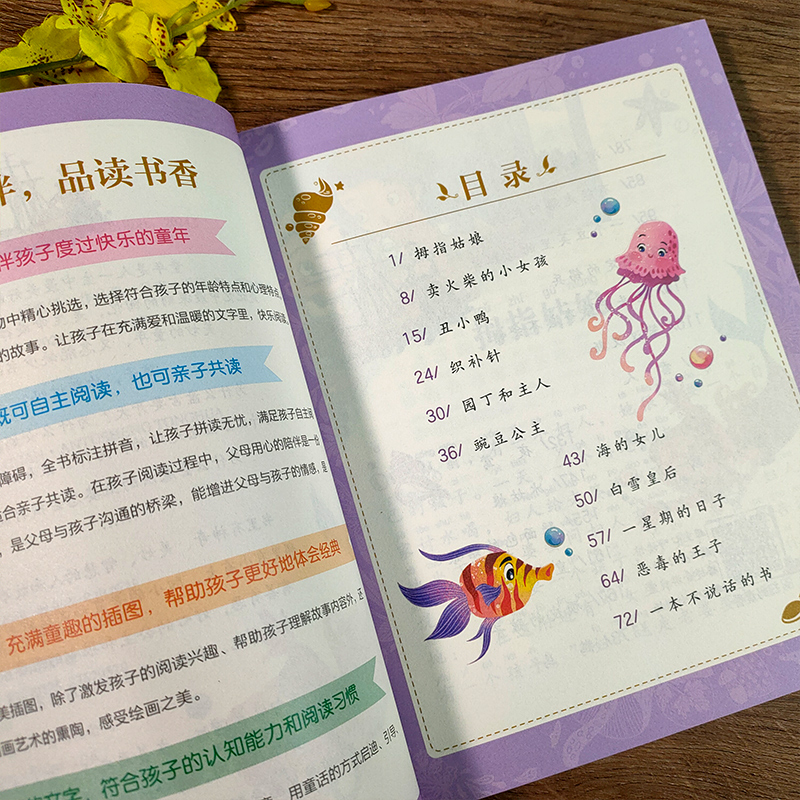 伴，品读书香
伴孩子度过快乐的童年
物中精心挑选，选择符合孩子的年龄特点和心理特点
的故事。让孩子在充满爱和温暖的文字里，快乐阅读
既可自主阅读，也可亲子共读
障碍，全书标注拼音，让孩子拼读无忧，满足孩子自主阅
适合亲子共读。在孩子阅读过程中，父母用心的陪伴是一份
，是父母与孩子沟通的桥梁，能增进父母与孩子的情感，是
充满童趣的插图，帮助孩子更好地体会经典
美插图，除了激发孩子的阅读兴趣、帮助孩子理解故事内容外，还
画艺术的熏陶，感受绘画之美。
的文字，符合孩子的认知能力和阅读习惯
用童话的方式启迪、引导、
目录
1/ 拇指姑娘
8/ 卖火柴的小女孩
15/ 丑小鸭
24/ 织补针
30/ 园丁和主人
36/ 豌豆公主
43/ 海的女儿
50/ 白雪皇后
57/ 一星期的日子
64/ 恶毒的王子
72/ 一本不说话的书